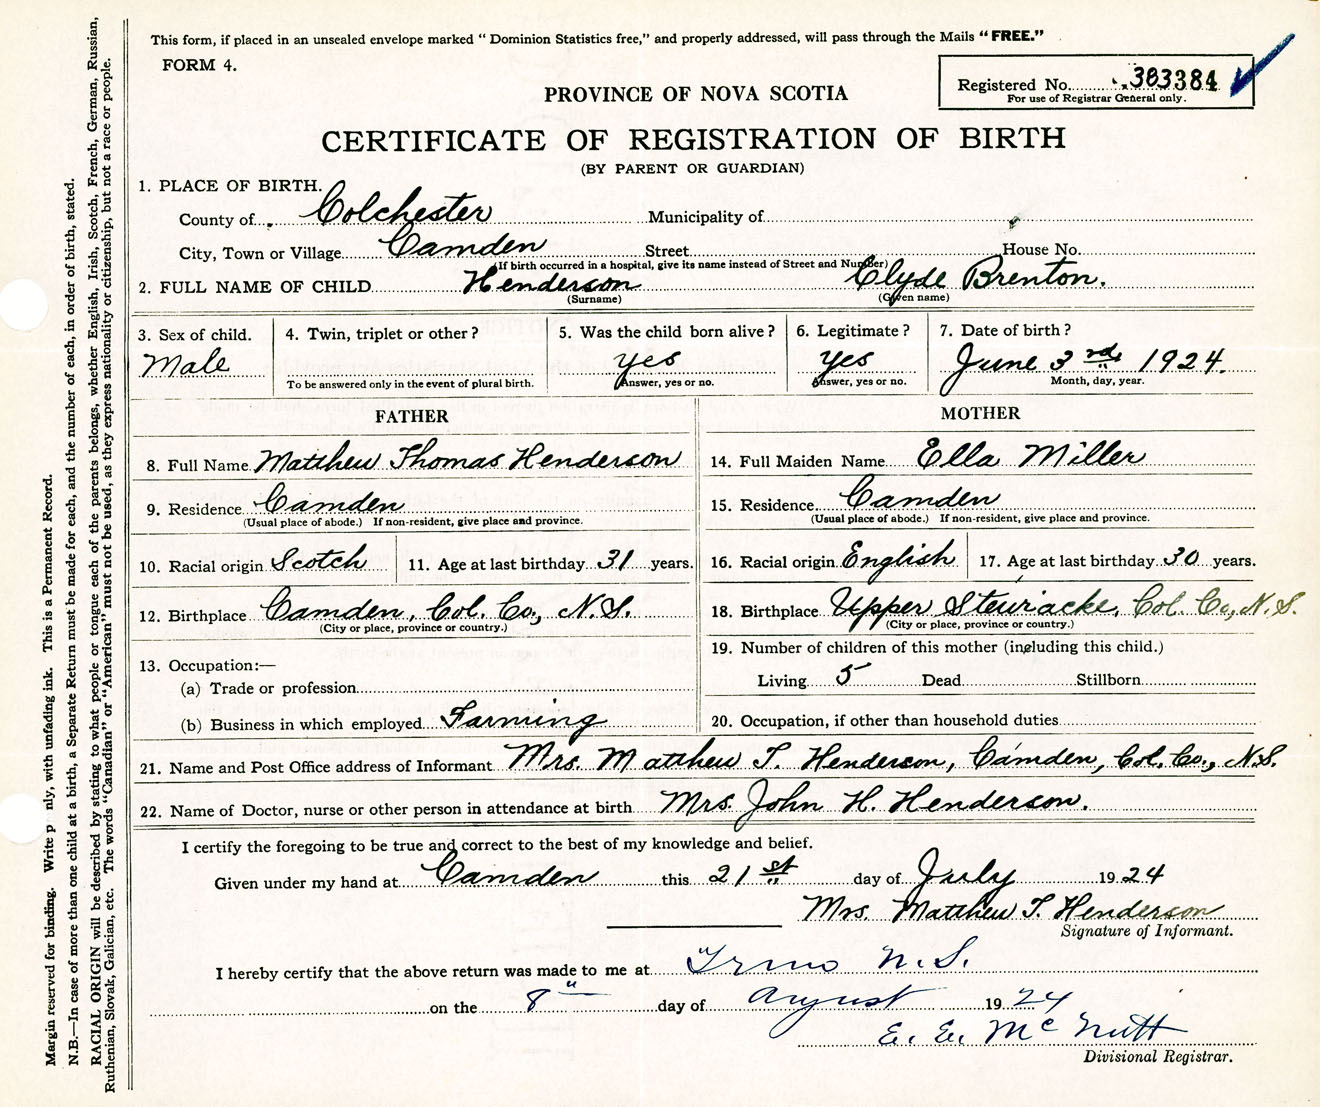 This form, if placed in an unsealed envelope marked " Dominion Statistics free," and properly addressed, will pass through the Mails " FREE."
FORM 4.
Registered No. 383384
For use of Registrar General only.
PROVINCE OF NOVA SCOTIA
CERTIFICATE OF REGISTRATION OF BIRTH
(BY PARENT OR GUARDIAN)
1. PLACE OF BIRTH.
County of Colchester Municipality of
City, Town or Village Camden Street House No.
(If birth occurred in a hospital, give its name instead of Street and Number)
2. FULL NAME OF CHILD Henderson Clyde Brenton.
(Surname) (Given name)
3. Sex of child. 4. Twin, triplet or other? 5. Was the child born alive? 6. Legitimate? 7. Date of birth?
Male yes yes June 3rd 1924.
To be answered only in the event of plural birth. Answer, yes or no. Answer, yes or no. Month, day, year.
FATHER MOTHER
8. Full Name Matthew Thomas Henderson 14. Full Maiden Name Ella Miller
9. Residence Camden 15. Residence Camden
(Usual place of abode.) If non-resident, give place and province. (Usual place of abode.) If non-resident, give place and province.
10. Racial origin Scotch 11. Age at last birthday 31 years. 16. Racial origin English 17. Age at last birthday 30 years.
12. Birthplace Camden, Col. Co., N.S. 18. Birthplace Upper Stewiacke, Col. Co., N.S.
(City or place, province or country.) (City or place, province or country.)
13. Occupation:— 19. Number of children of this mother (including this child.)
(a) Trade or profession Living 5 Dead Stillborn
(b) Business in which employed Farming 20. Occupation, if other than household duties
21. Name and Post Office address of Informant Mrs. Matthew T. Henderson, Camden, Col. Co., N.S.
22. Name of Doctor, nurse or other person in attendance at birth Mrs. John H. Henderson.
I certify the foregoing to be true and correct to the best of my knowledge and belief.
Given under my hand at Camden this 21st day of July 1924
Mrs. Matthew T. Henderson
Signature of Informant.
I hereby certify that the above return was made to me at N.S.
on the 8" day of August 1924
E. E. McNutt
Divisional Registrar.
Margin reserved for binding. Write p nly, with unfading ink. This is a Permanent Record.
N.B.—In case of more than one child at a birth, a Separate Return must be made for each, and the number of each, in order of birth, stated.
RACIAL ORIGIN will be described by stating to what people or tongue each of the parents belongs, whether English, Irish, Scotch, French, German, Russian,
Ruthenian, Slovak, Galician, etc. The words "Canadian" or "American" must not be used, as they express nationality or citizenship, but not a race or people.